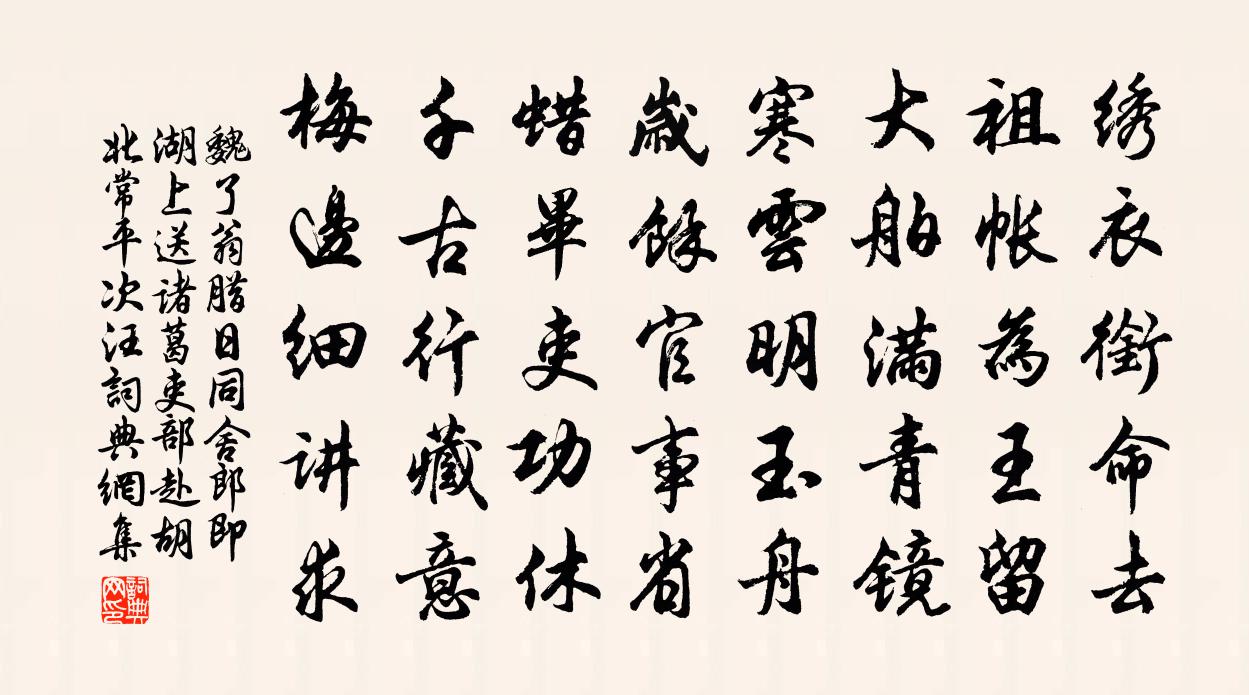 绣衣銜命去
祖帐為王留
大舶满青镜
寒雲明玉舟
嵗餘官事省
蜡畢吏功休
千古行藏意
梅邊细讲求
魏了翁腊日同舍郎即
湖上送诸葛吏部赴胡
北常平次汪詞典網集
詞典網印